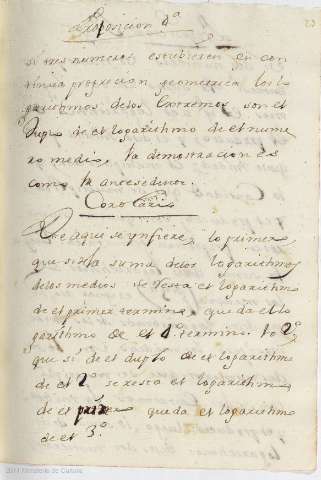 Proposicion 8ª
Si tres numeros estubiesen en con
tinua progrecion geometrica los lo
garithmos delos Extremos son el
Duplo de el logarithmo de el nume
ro medio, la demostracion es
como la antesedente.
Corolario
De aqui se ynfiere, lo primero
que si la suma delos logarithmos
delos medios se resta el logarithmo
de el primer termino, queda el lo
garithmo de el 4º. termino lo 2º.
que si de el duplo de el logarithmo
de el 2 se resta el logarithmo
de el queda el logarithmo
de el 3º.
2011 Ministerio de Cultura